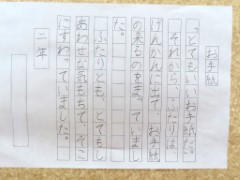 お手紙
「とてもいいお手紙だ。」
それから、ふたりは
げんかんに出て、お手紙
のくるのをまっていまし
た。
ふたりとも、とても
しあわせな気もちで、そこ
にすわっていました。
二年